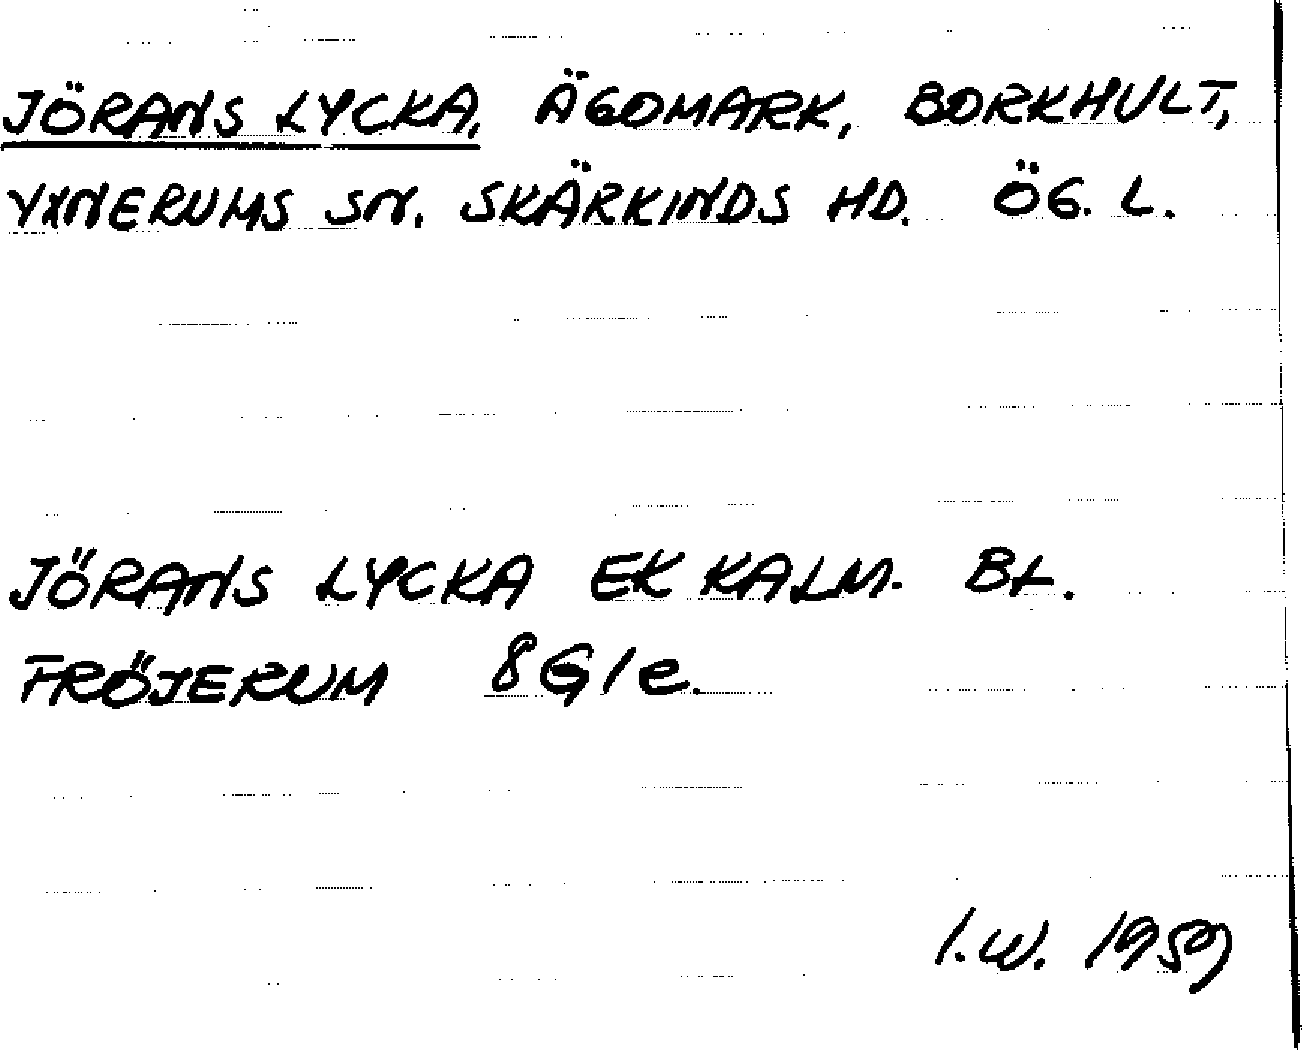 JÖRANS LYCKA, ÄGOMARK, BORKHULT,
YXNERUMS SN. SKÄRKINDS HD. ÖG. L.
JÖRANS LYCKA EK KALM. BL.
FRÖJERUM 8G1e.
I.W. 1959